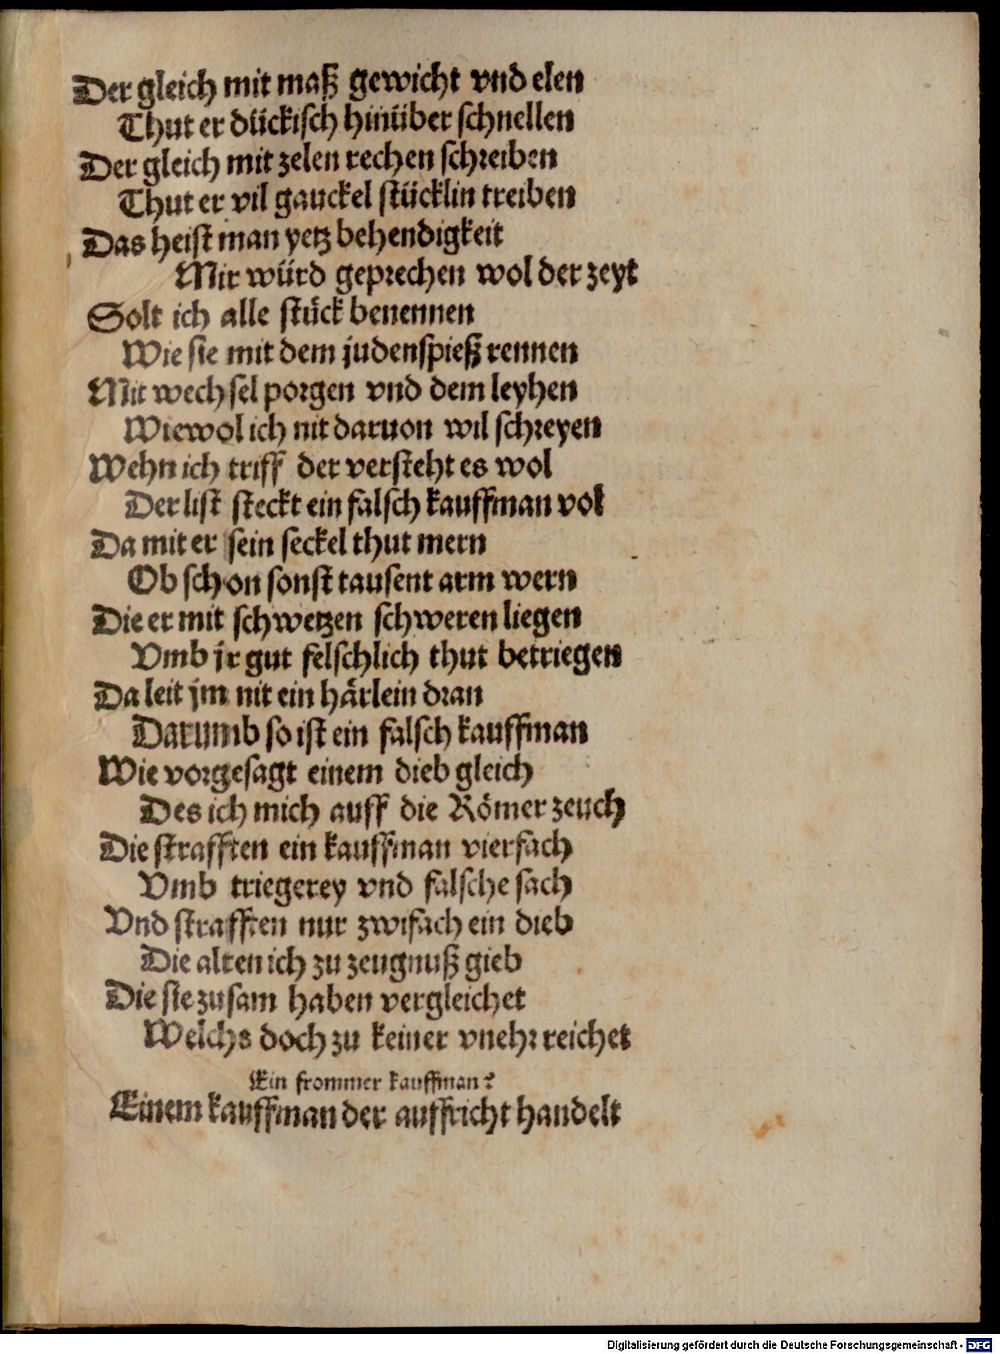 Der gleich mit maß gewicht vnd elen
Thut er dückisch hinüber schnellen
Der gleich mit zelen rechen schreiben
Thut er vil gauckel stücklin treiben
Das heist man yetz behendigkeit
Mir würd geprechen wol der zeyt
Solt ich alle stück benennen
Wie sie mit dem judenspieß rennen
Mit wechsel porgen vnd dem leyhen
Wiewol ich nit daruon wil schreyen
Wehn ich triff der versteht es wol
Der list steckt ein falsch kauffman vol
Da mit er sein seckel thut mern
Ob schon sonst tausent arm wern
Die er mit schwetzen schweren liegen
Vmb jr gut felschlich thut betriegen
Da leit jm nit ein härlein dran
Darumb so ist ein falsch kauffman
Wie vorgesagt einem dieb gleich
Des ich mich auff die Römer zeuch
Die strafften ein kauffman vierfach
Vmb triegerey vnd falsche sach
Vnd strafften nur zwifach ein dieb
Die alten ich zu zeugnuß gieb
Die sie zusam haben vergleichet
Welchs doch zu keiner vnehr reichet
Ein frommer kauffman?
Einem kauffman der auffricht handelt
Digitalisierung gefördert durch die Deutsche Forschungsgemeinschaft - DFG